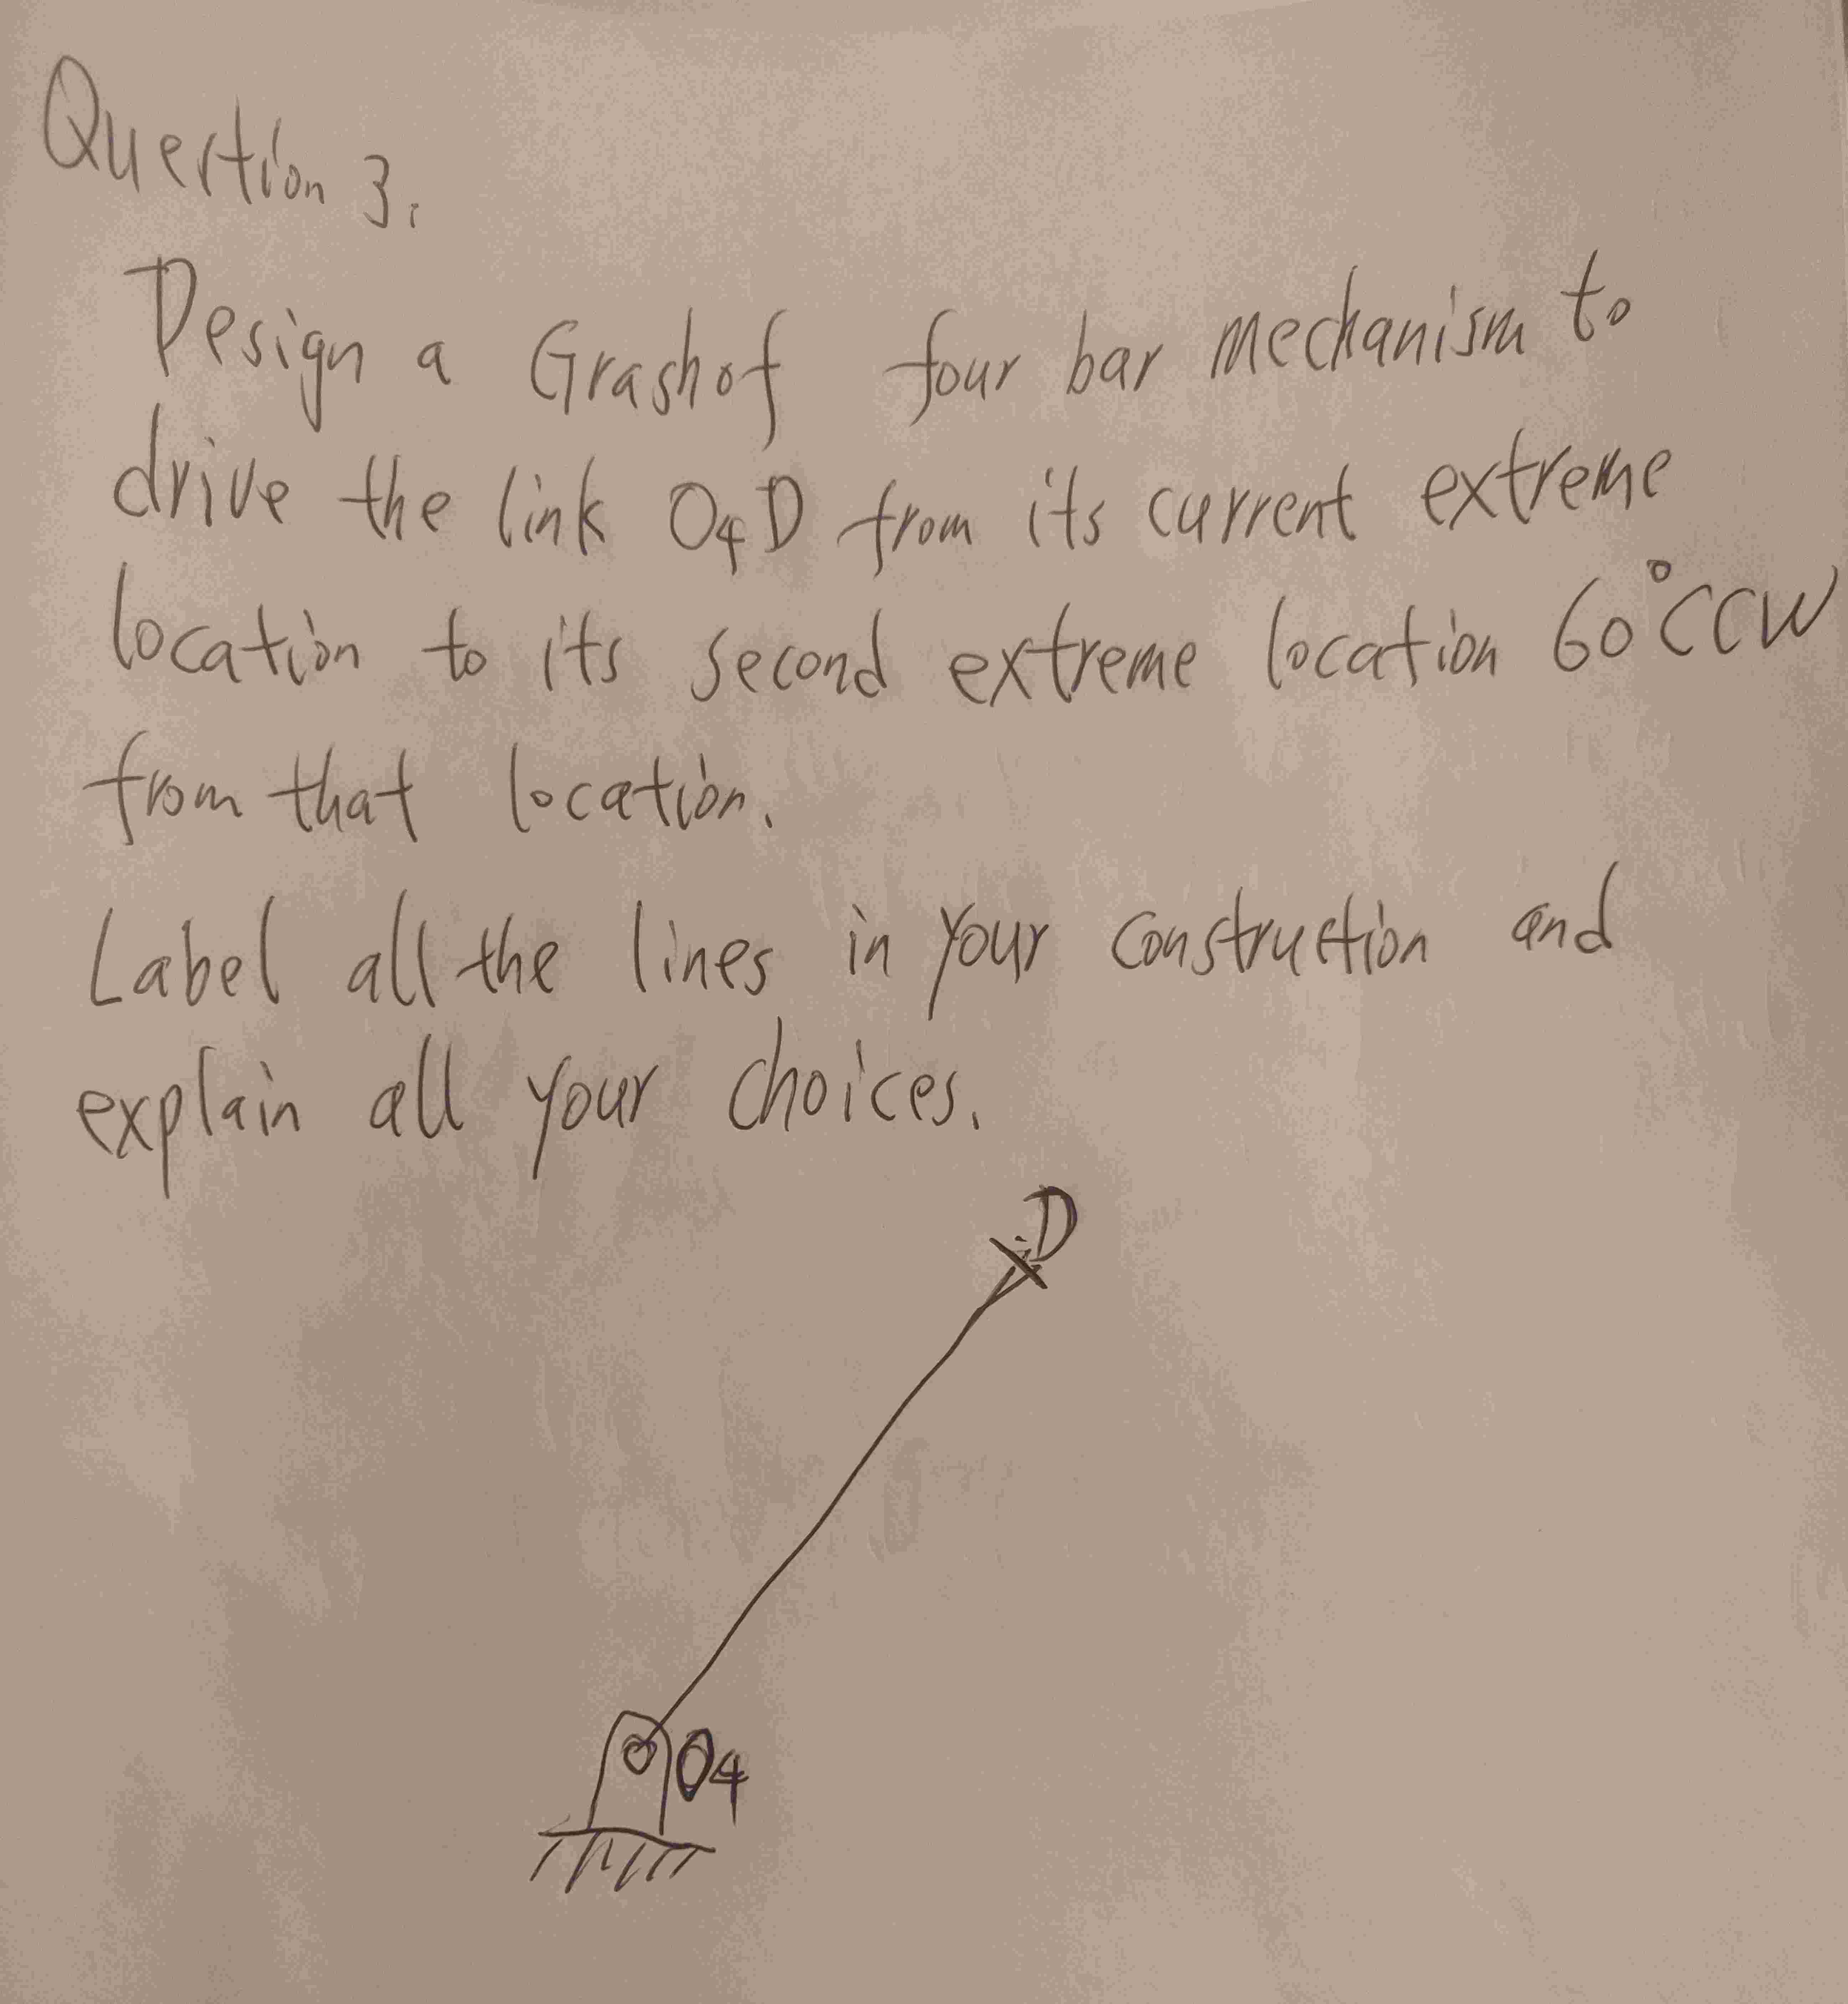 Question 3.
Design a Grashof four bar mechanism to
drive the link O4D from its current extreme
location to its second extreme location 60°CCW
from that location.
Label all the lines in your construction and
explain all your choices.
D
O4